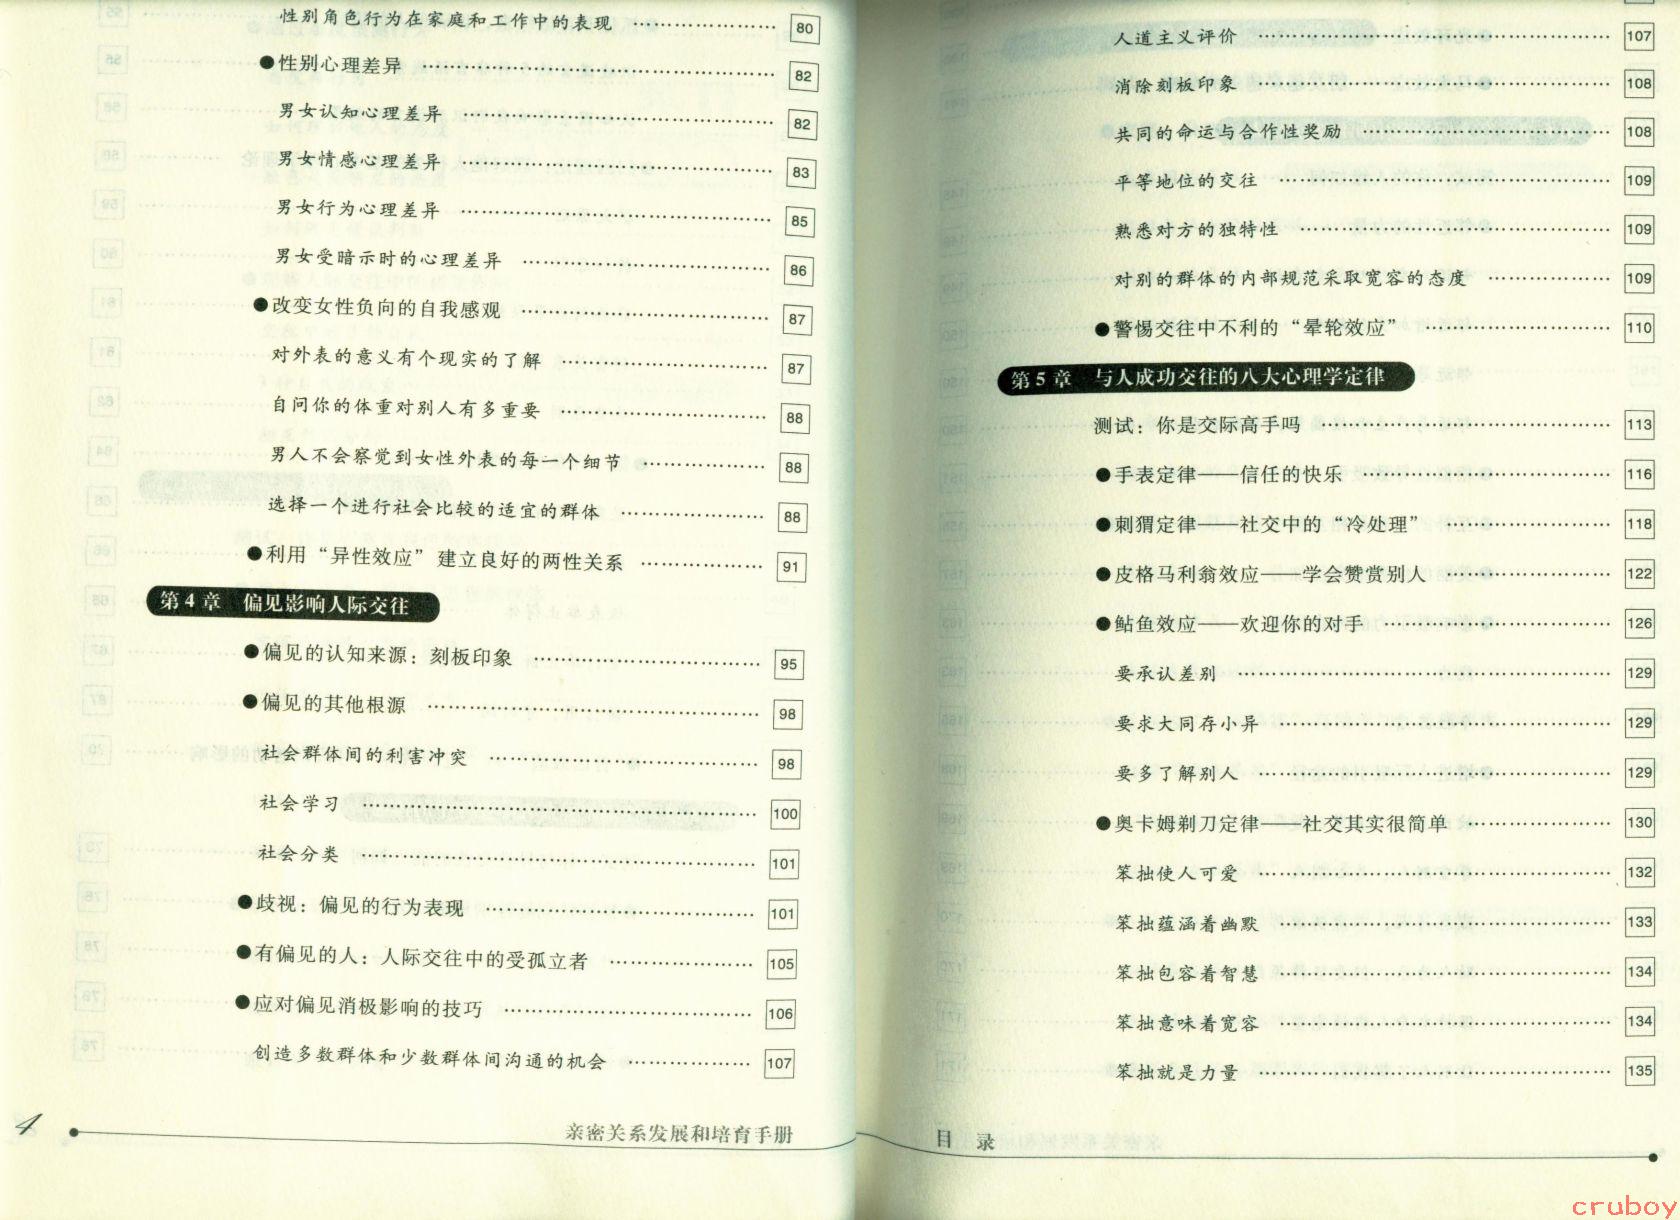 性别角色行为在家庭和工作中的表现 …… 80
●性别心理差异 …… 82
男女认知心理差异 …… 82
男女情感心理差异 …… 83
男女行为心理差异 …… 85
男女受暗示时的心理差异 …… 86
●改变女性负向的自我感观 …… 87
对外表的意义有个现实的了解 …… 87
自问你的体重对别人有多重要 …… 88
男人不会察觉到女性外表的每一个细节 …… 88
选择一个进行社会比较的适宜的群体 …… 88
●利用“异性效应”建立良好的两性关系 …… 91
第4章 偏见影响人际交往
●偏见的认知来源：刻板印象 …… 95
●偏见的其他根源 …… 98
社会群体间的利害冲突 …… 98
社会学习 …… 100
社会分类 …… 101
●歧视：偏见的行为表现 …… 101
●有偏见的人：人际交往中的受孤立者 …… 105
●应对偏见消极影响的技巧 …… 106
创造多数群体和少数群体间沟通的机会 …… 107
4 亲密关系发展和培育手册
人道主义评价 …… 107
消除刻板印象 …… 108
共同的命运与合作性奖励 …… 108
平等地位的交往 …… 109
熟悉对方的独特性 …… 109
对别的群体的内部规范采取宽容的态度 …… 109
●警惕交往中不利的“晕轮效应” …… 110
第5章 与人成功交往的八大心理学定律
测试：你是交际高手吗 …… 113
●手表定律——信任的快乐 …… 116
●刺猬定律——社交中的“冷处理” …… 118
●皮格马利翁效应——学会赞赏别人 …… 122
●鲇鱼效应——欢迎你的对手 …… 126
要承认差别 …… 129
要求大同存小异 …… 129
要多了解别人 …… 129
●奥卡姆剃刀定律——社交其实很简单 …… 130
笨拙使人可爱 …… 132
笨拙蕴涵着幽默 …… 133
笨拙包容着智慧 …… 134
笨拙意味着宽容 …… 134
笨拙就是力量 …… 135
目 录
cruboy